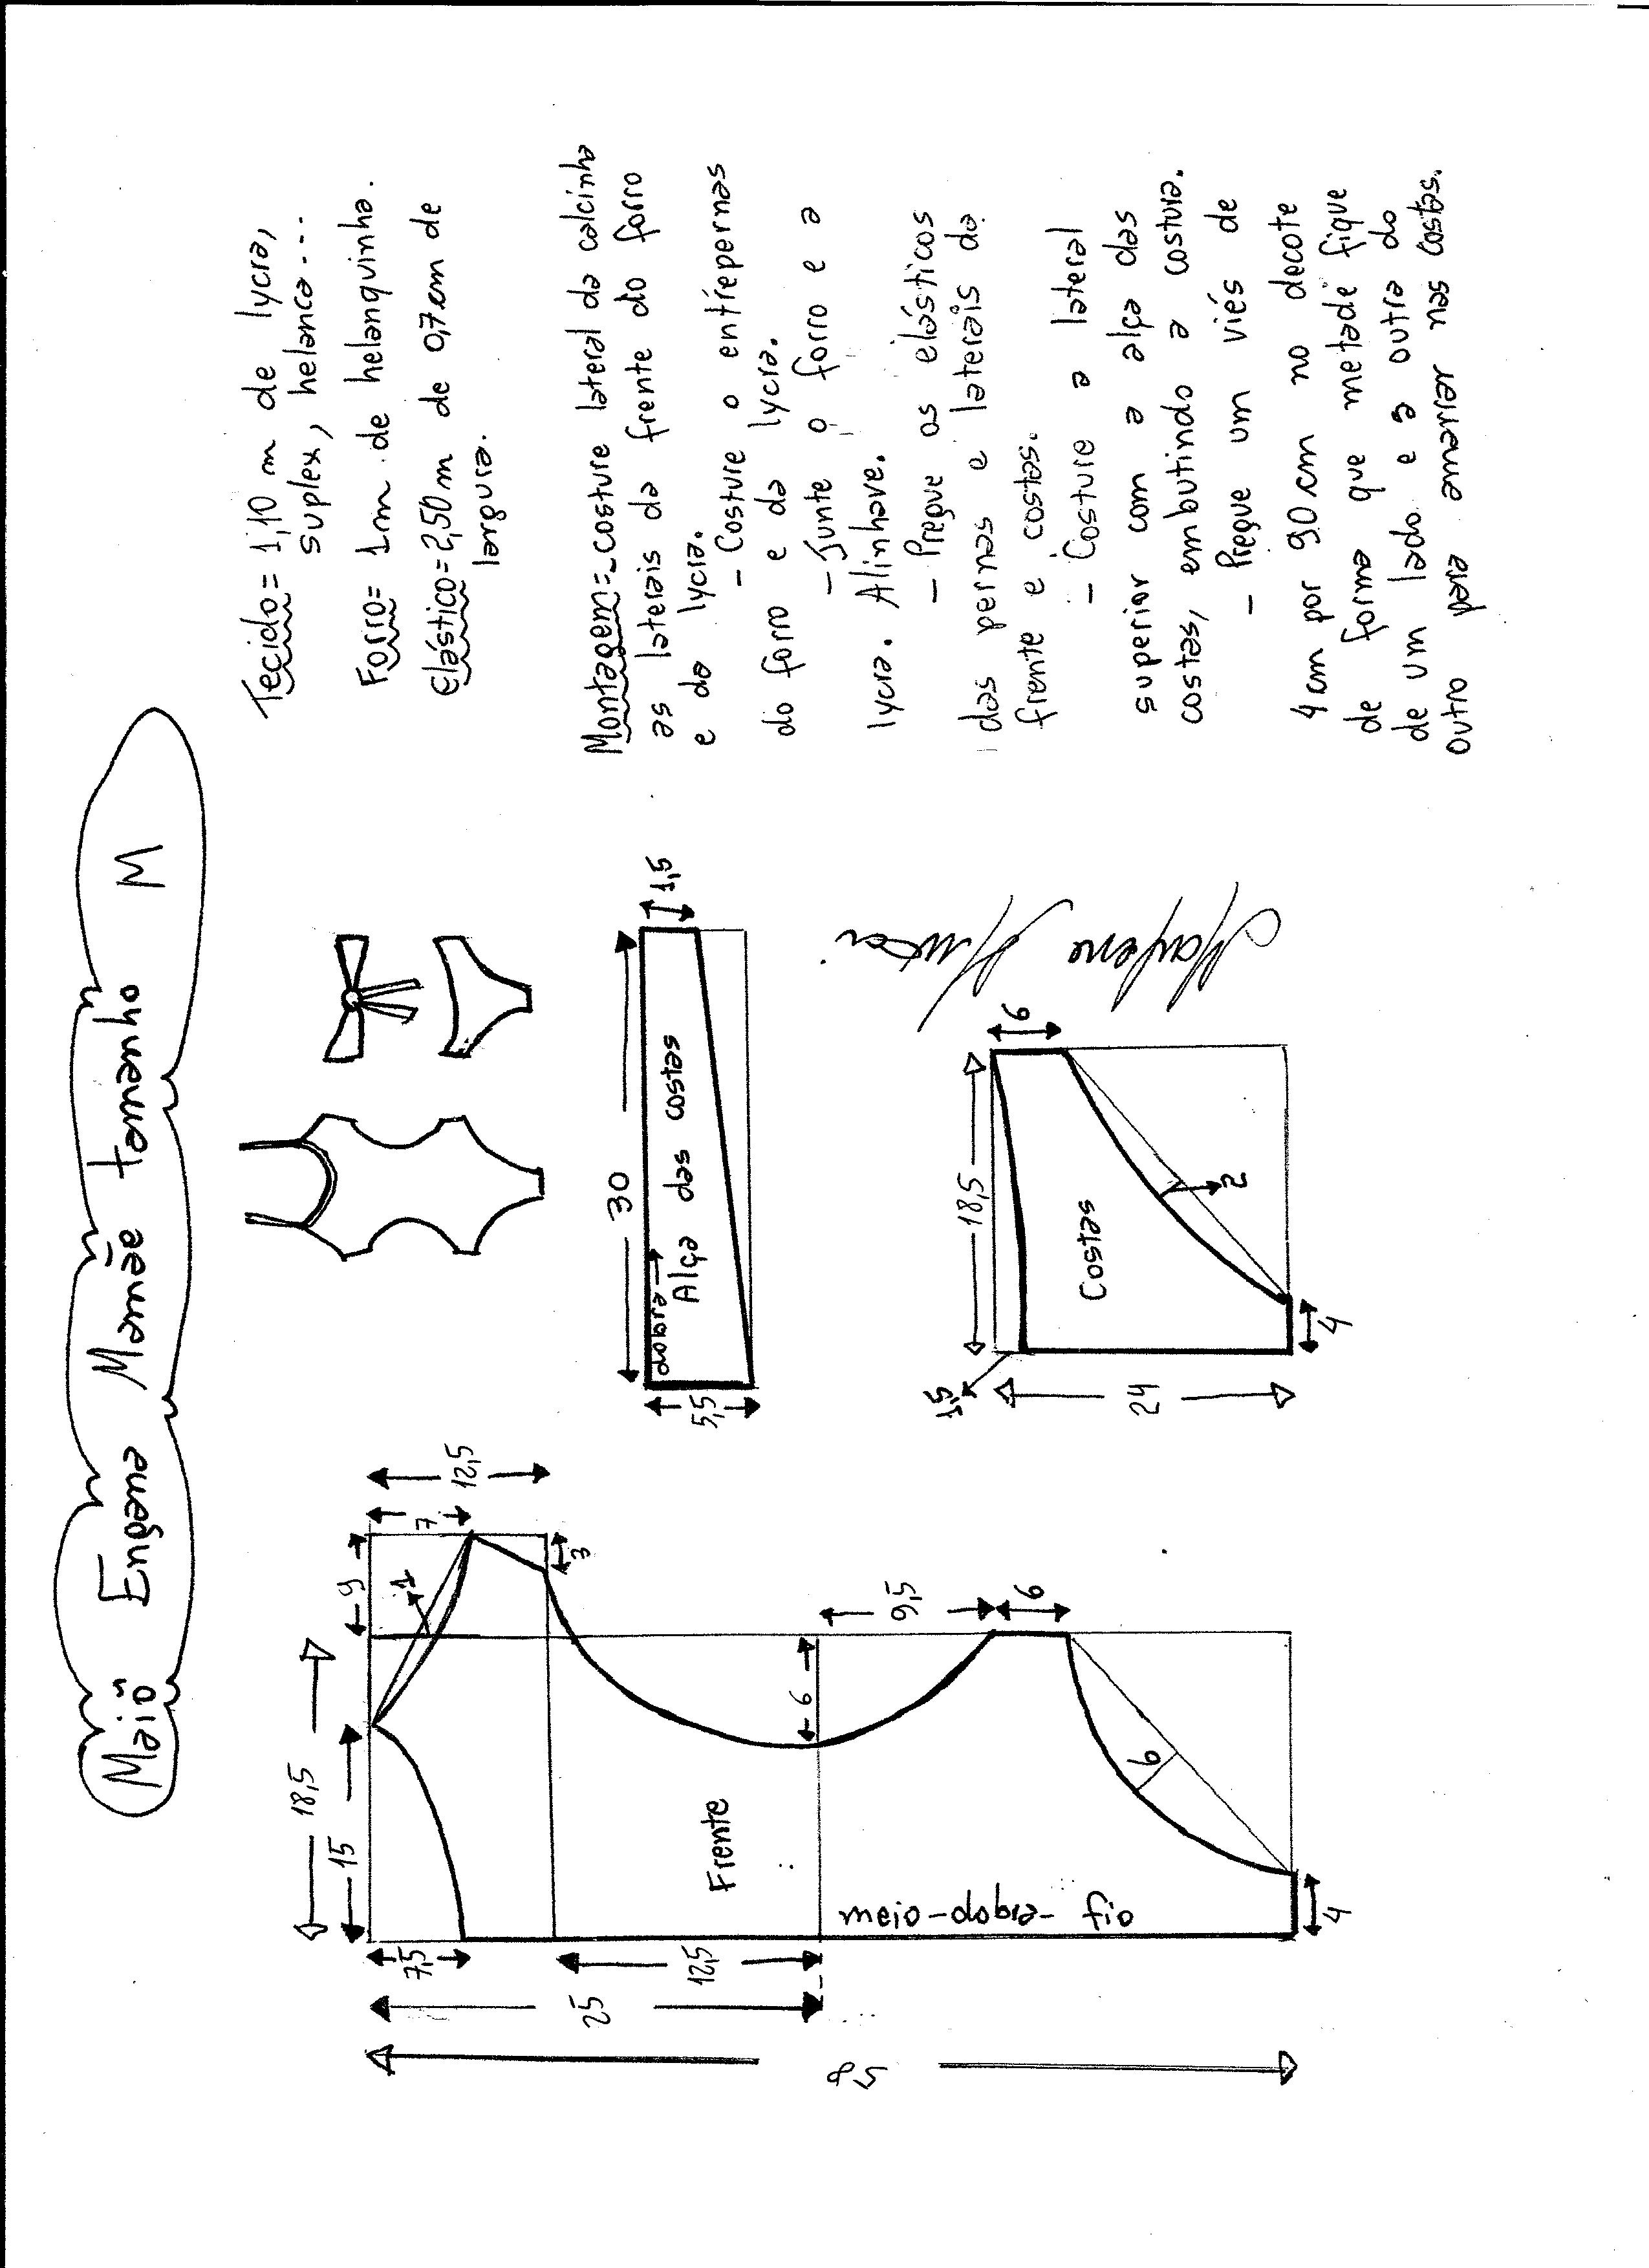 Maiô Engana Mamãe tamanho M
Tecido = 1,10 m de lycra,
suplex, helanca...
Forro = 1m de helanquinha.
Elástico = 2,50 m de 0,7 cm de
largura.
Montagem = costure lateral da calcinha
as laterais da frente do forro
e da lycra.
- Costure o entrepernas
do forro e da lycra.
- Junte o forro e a
lycra. Alinhave.
- Pregue os elásticos
das pernas e laterais da
frente e costas.
- Costure a lateral
superior com a alça das
costas, embutindo a costura.
- Pregue um viés de
4 cm por 90 cm no decote
de forma que metade fique
de um lado e a outra do
outro para amarrar nas costas.
30
1,5
dobra
Alça das costas
5,5
18,5
6
Costas
2
1,5
24
4
18,5
15
9
1
7
12,5
3
7,5
25
12,5
58
6
9,5
6
6
4
Frente
meio-dobra-fio